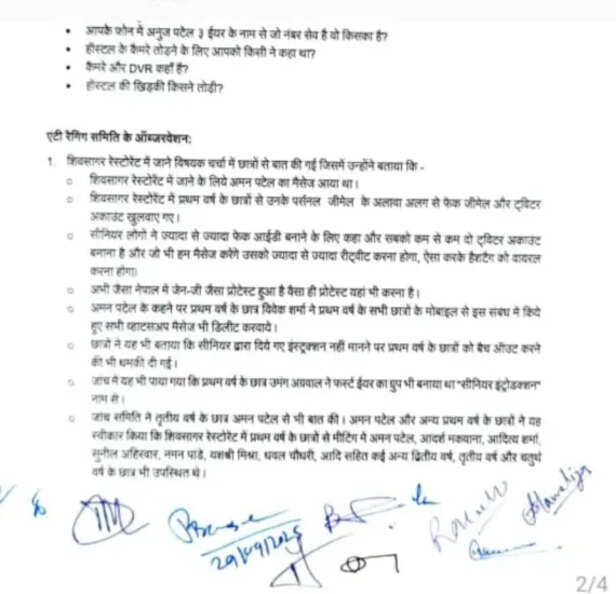 आपके फोन में अनुज पटेल ३ ईयर के नाम से जो नंबर सेव है वो किसका है?
हॉस्टल के कैमरे तोड़ने के लिए आपको किसी ने कहा था?
कैमरे और DVR कहाँ है?
हॉस्टल की खिड़की किसने तोड़ी?
एंटी रैगिंग समिति के ऑब्जरवेशन:
1. शिवसागर रेस्टोरेंट में जाने विषयक चर्चा में छात्रों से बात की गई जिसमें उन्होंने बताया कि -
शिवसागर रेस्टोरेंट में जाने के लिये अमन पटेल का मैसेज आया था।
शिवसागर रेस्टोरेंट में प्रथम वर्ष के छात्रों से उनके पर्सनल जीमेल के अलावा अलग से फेक जीमेल और ट्विटर
अकाउंट खुलवाए गए।
सीनियर लोगों ने ज्यादा से ज्यादा फेक आईडी बनाने के लिए कहा और सबको कम से कम दो ट्विटर अकाउंट
बनाना है और जो भी हम मैसेज करेंगे उसको ज्यादा से ज्यादा रीट्वीट करना होगा, ऐसा करके हैशटैग को वायरल
करना होगा।
अभी जैसा नेपाल में जेन-जी जैसा प्रोटेस्ट हुआ है वैसा ही प्रोटेस्ट यहां भी करना है।
अमन पटेल के कहने पर प्रथम वर्ष के छात्र विवेक शर्मा ने प्रथम वर्ष के सभी छात्रों के मोबाइल से इस संबंध में किये
हुए सभी व्हाटसअप मैसेज भी डिलीट करवाये।
छात्रों ने यह भी बताया कि सीनियर द्वारा दिये गए इंस्ट्रक्शन नहीं मानने पर प्रथम वर्ष के छात्रों को बैच ऑउट करने
की भी धमकी दी गई।
जांच में यह भी पाया गया कि प्रथम वर्ष के छात्र उमंग अग्रवाल ने फर्स्ट ईयर का ग्रुप भी बनाया था "सीनियर इंट्रोडक्शन"
नाम से।
जांच समिति ने तृतीय वर्ष के छात्र अमन पटेल से भी बात की। अमन पटेल और अन्य प्रथम वर्ष के छात्रों ने यह
स्वीकार किया कि शिवसागर रेस्टोरेंट में प्रथम वर्ष के छात्रों से मीटिंग में अमन पटेल, आदर्श मकवाना, आदित्य शर्मा,
सुनील अहिरवार, नमन पांडे, यशश्री मिश्रा, धवल चौधरी, आदि सहित कई अन्य द्वितीय वर्ष, तृतीय वर्ष और चतुर्थ
वर्ष के छात्र भी उपस्थित थे।
29/09/2025
2/4